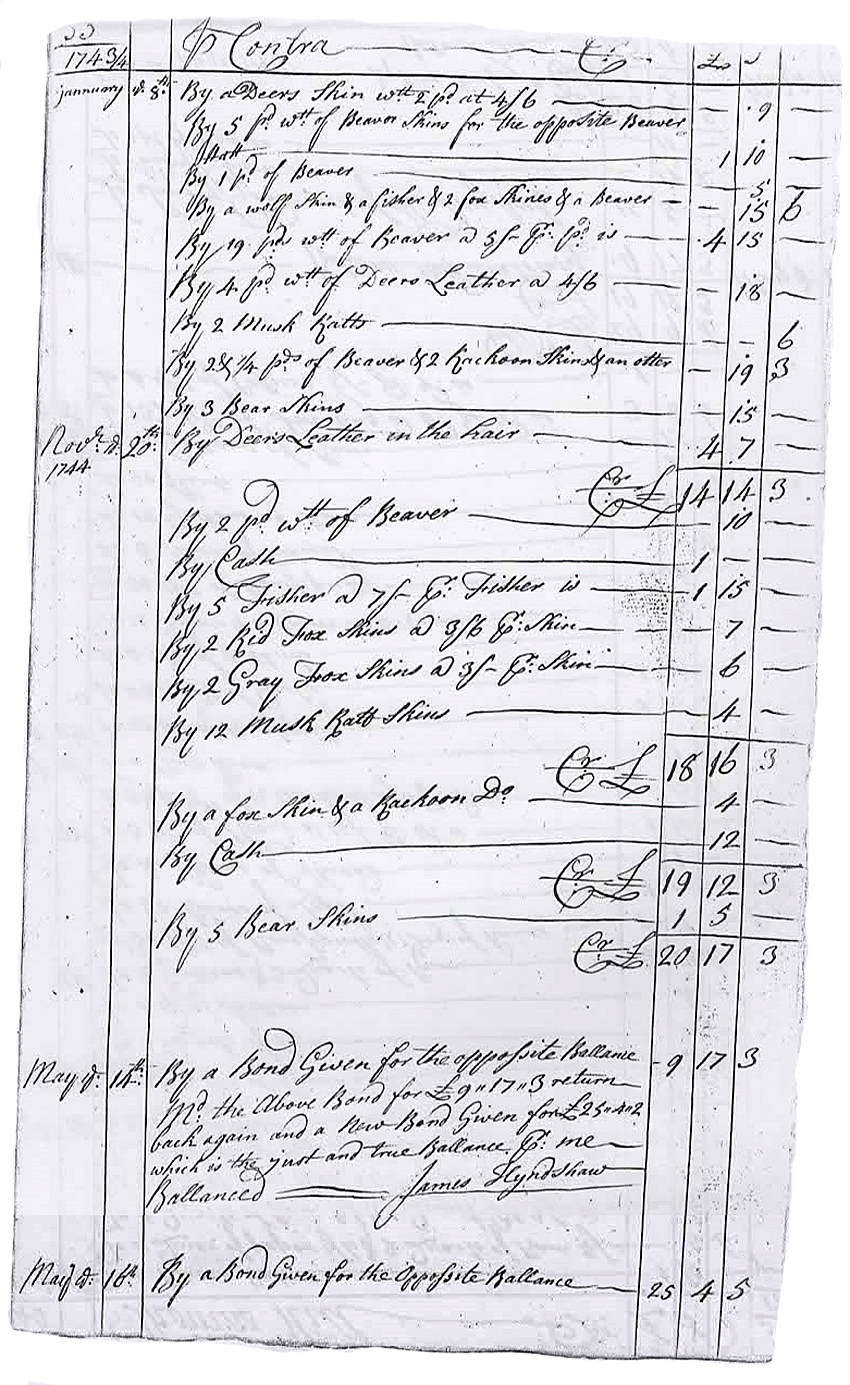 33
1743/4 P Contra Cr. £ s
jannuary d. 8th By a Deers Skin wtt 2 pd at 4/6 — — 9 —
By 5 pd wtt of Beavor Skins for the opposite Beaver
Hatt — 1 10 —
By 1 pd of Beaver — — 5 —
By a wolf Skin & a fisher & 2 fox Skines & a Beaver — — 15 6
By 19 pds wtt of Beaver a 5/- Pr. pd is — 4 15 —
By 4 pd wtt of Deers Leather a 4/6 — — 18 —
By 2 Musk Ratts — — — 6
By 2 & 3/4 pds of Beaver & 2 Rackoon Skins & an otter — 19 3
By 3 Bear Skins — — 15 —
Novbr. d. 20th By Deers Leather in the hair — 4 7 —
1744
Cr £ 14 14 3
By 2 pd wtt of Beaver — — 10 —
By Cash — 1 — —
By 5 Fisher a 7/- Pr. Fisher is — 1 15 —
By 2 Rid Fox Skins a 3/6 Pr. Skin — — 7 —
By 2 Gray Fox Skins a 3/- Pr. Skin — — 6 —
By 12 Musk Ratt Skins — — 4 —
Cr £ 18 16 3
By a fox Skin & a Rackoon Do. — 4 —
By Cash — 12 —
Cr £ 19 12 3
By 5 Bear Skins — 1 5 —
Cr £ 20 17 3
May d. 14th. By a Bond Given for the opposite Ballance - 9 17 3
Md. the Above Bond for £ 9 " 17 " 3 return
back again and a New Bond Given for £ 25 " 4 " 2
which is the just and true Ballance Pr. me
Ballanced — James Hyndshaw
May d. 16th. By a Bond Given for the Opposite Ballance — 25 4 5